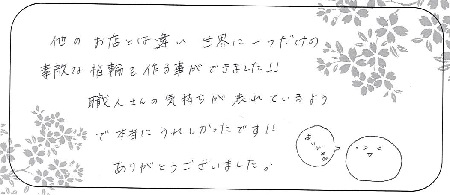 他のお店とは違い 世界に一つだけの
素敵な指輪を作る事ができました!!
職人さんの気持ちが表れているよう
で本当にうれしかったです!!
ありがとうございました。